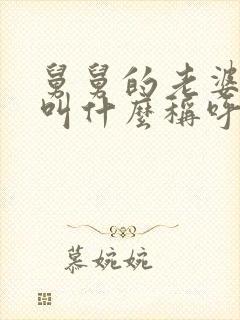 舅舅的老婆
叫什麼稱呼
慕婉婉